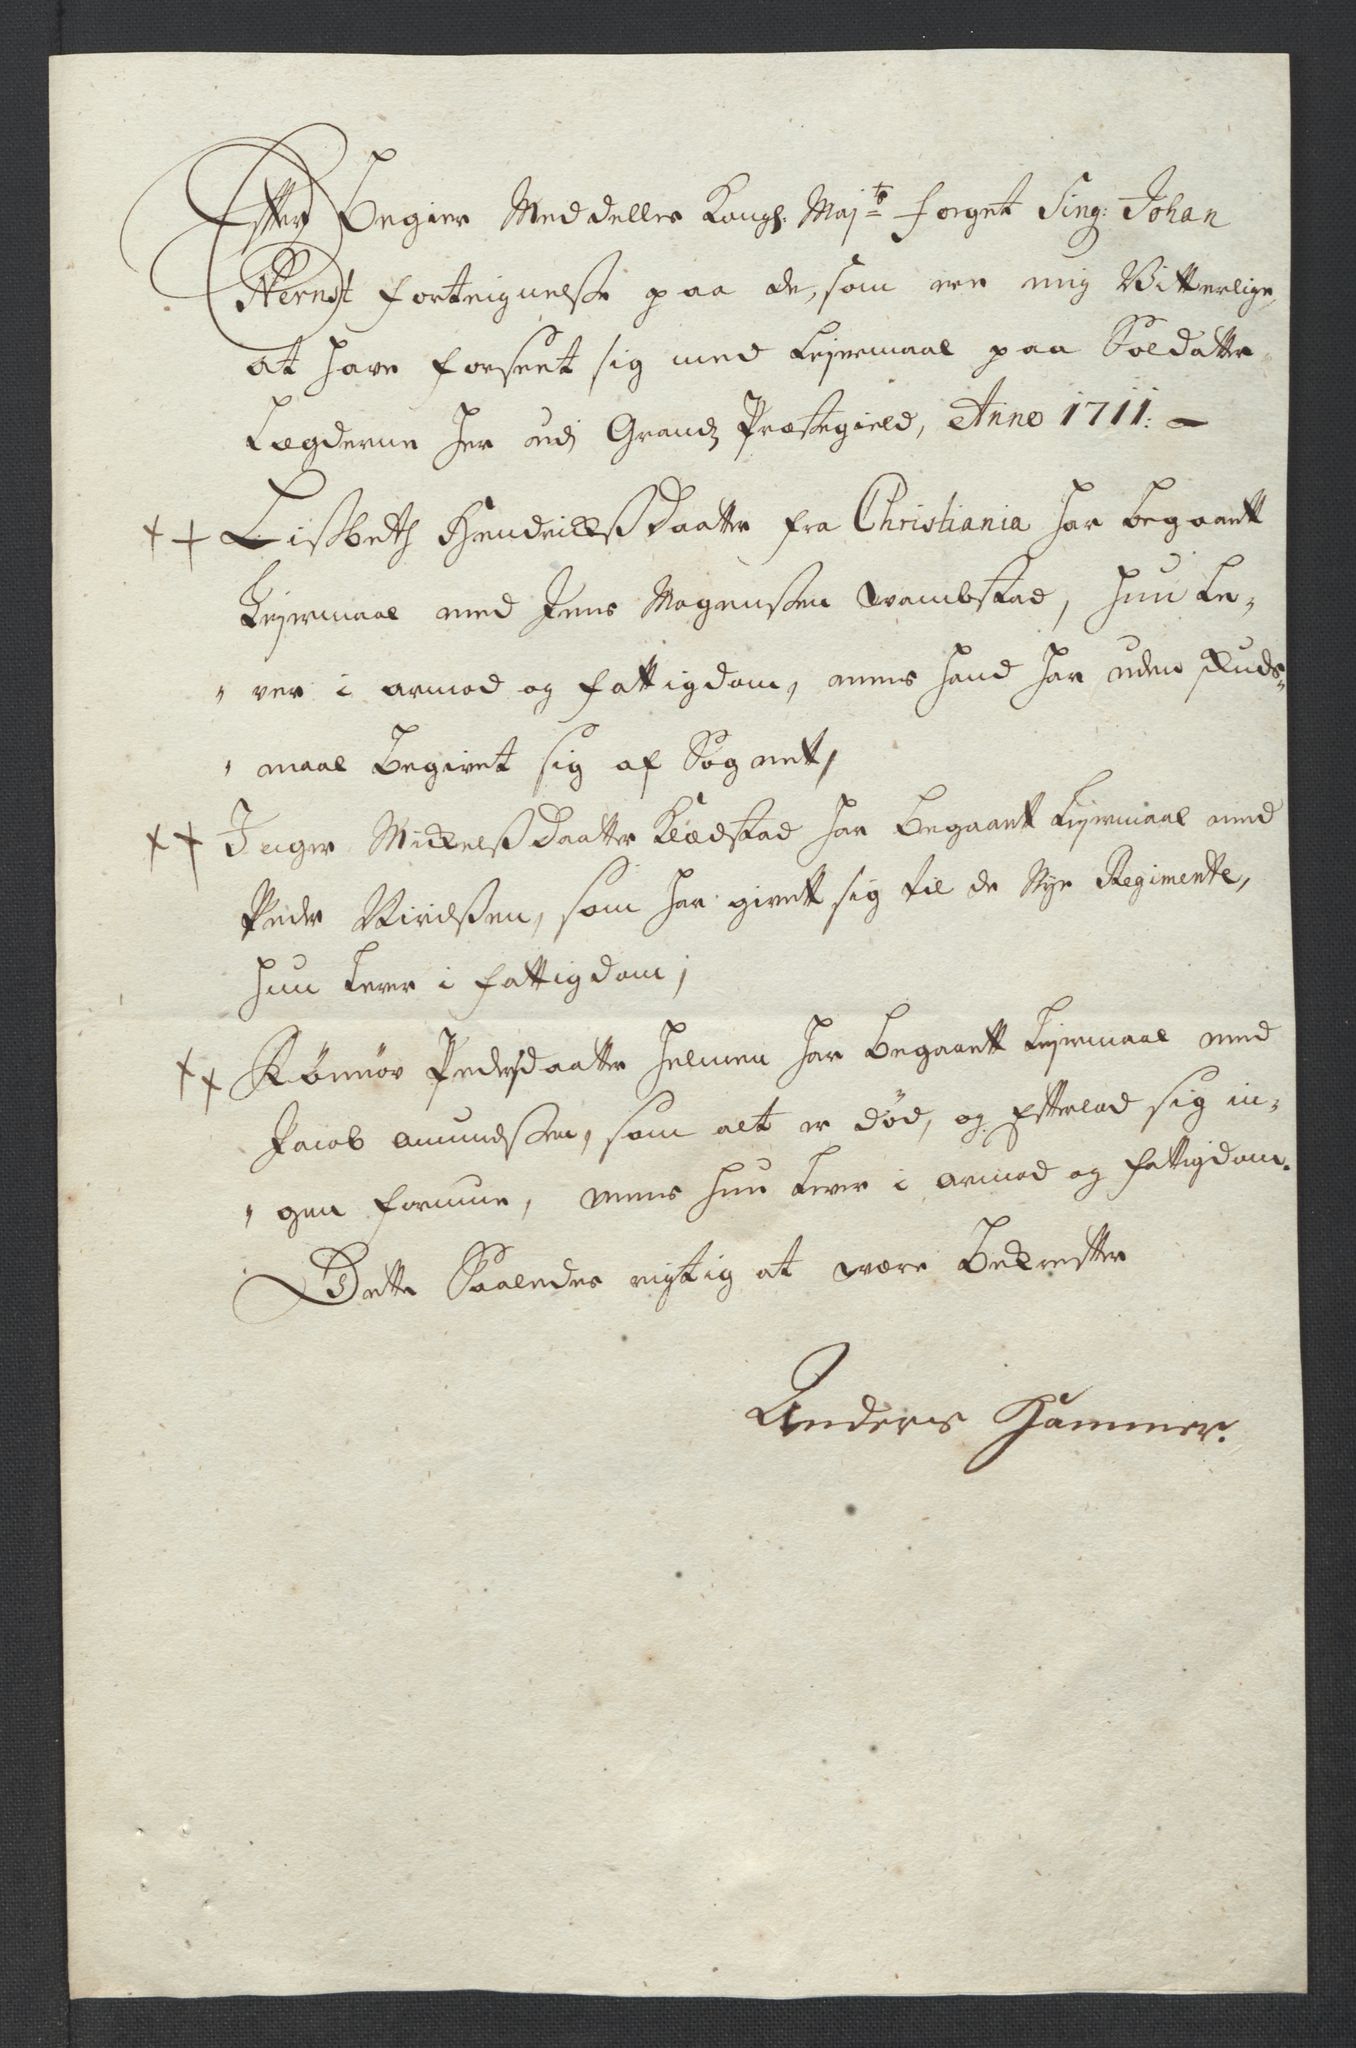 Efter Begier Meddelles Kongl: Maj:ts foeget Sing: Johan
Nernst forteignelsse paa de, som ere mig Vitterlige
at have forseet sig med Leiermaal paa Soldatte-
Lægderne her udj Grandz Præstegield, Anno 1711:
++ Lissbeth Hendrickssdaatter fra Christiania har begaaett
Leiermaal med Jens Mogenssen wambstad, hun le-
ver i armod og fattigdom, mens hand har uden skuds-
maal begivet sig af Sognet,
++ Inger Mickelssdaatter Klædstad har begaaett Leiermaal med
Peder Nirilssen, som har givett sig til de Nye Regimente,
hun lever i fattigdom,
++ Rönnöv Pedersdaatter Helmen har begaaett Leiermaal med
Jacob amundssen, som alt er död, og efterlod sig in-
gen formue, mens hun lever i armod og fattigdom.
Dette Saaledes rigtig at være Bekrefter
Anders Hammer.